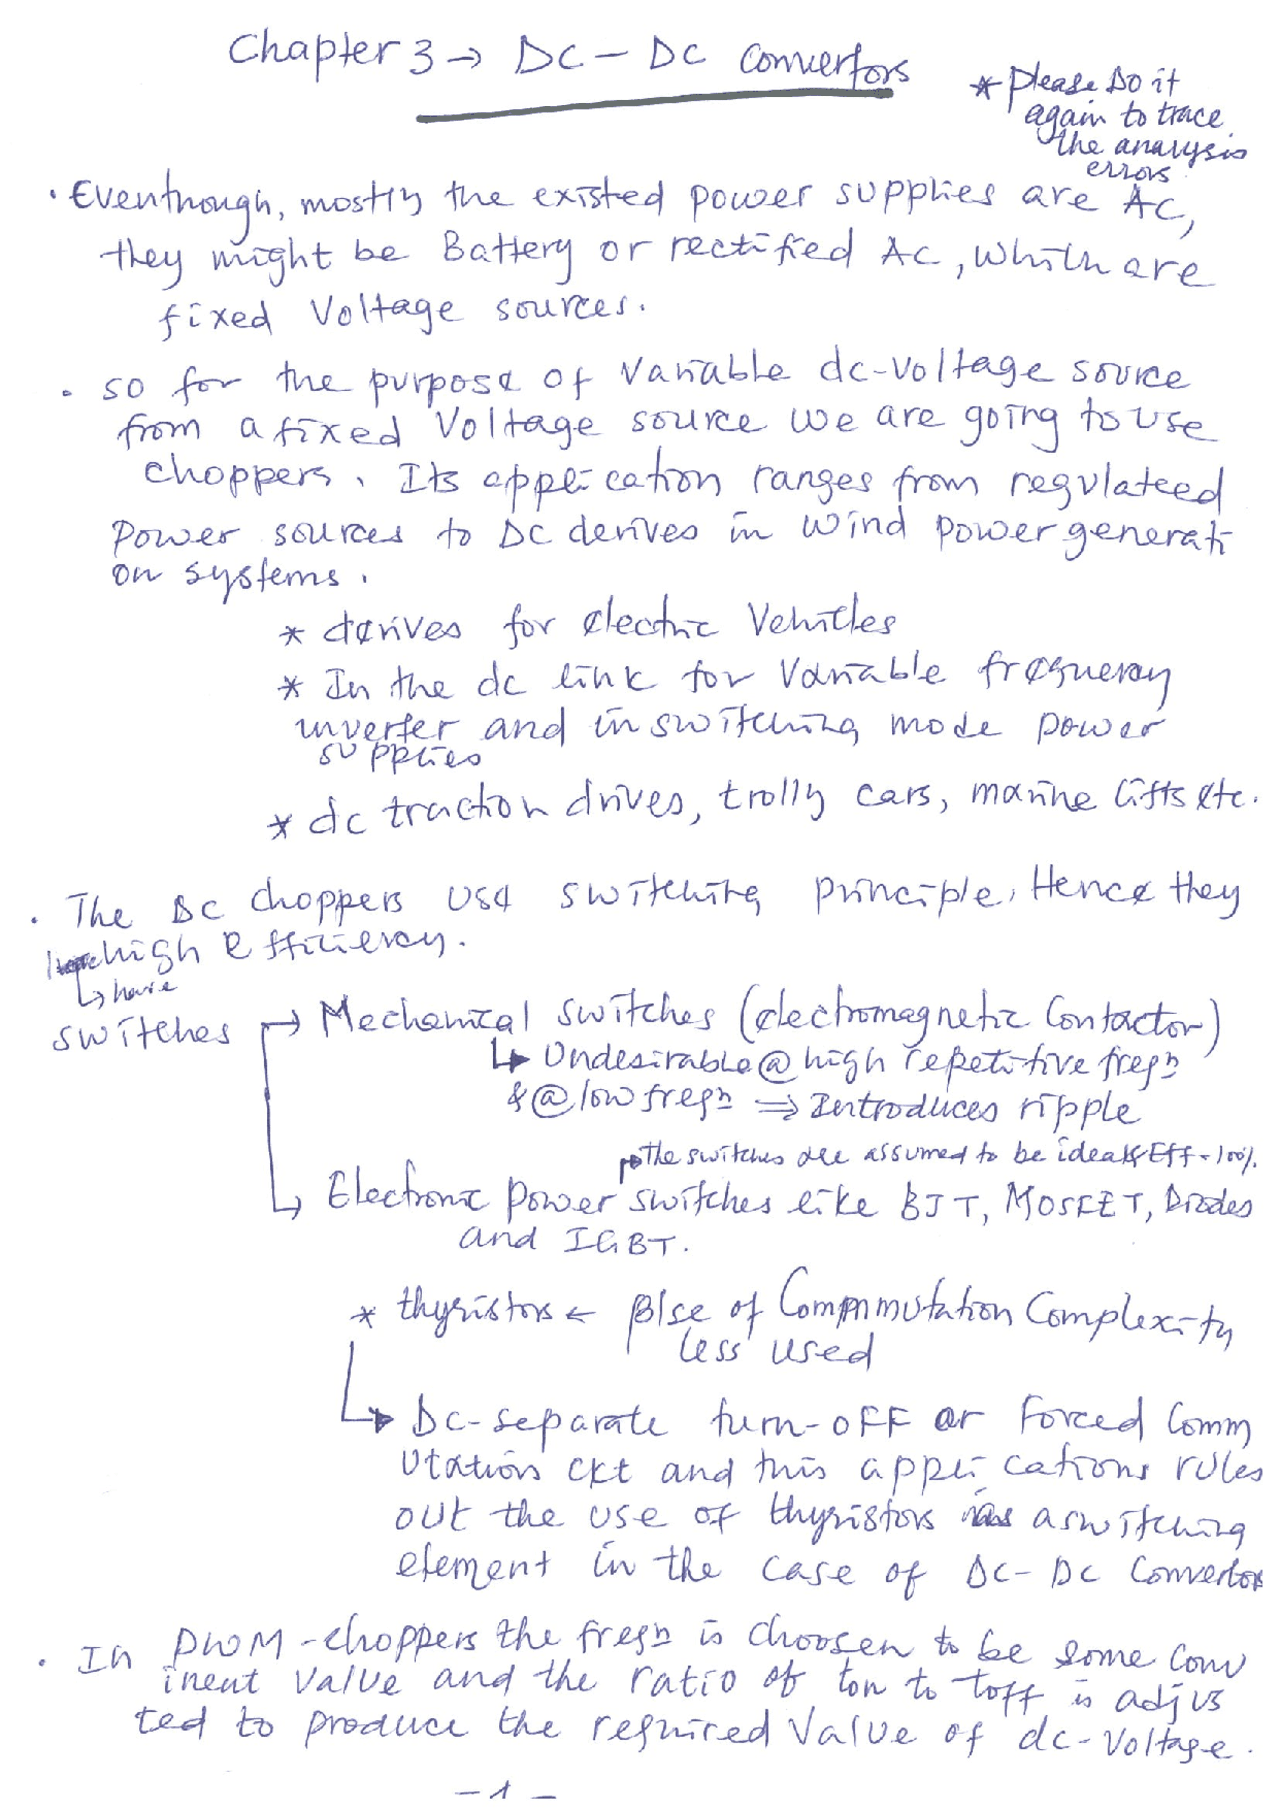 Chapter 3 → DC - DC Convertors
* please Do it
again to trace
the analysis
errors
• Eventhough, mostly the existed power supplies are AC,
they might be Battery or rectified AC, which are
fixed Voltage sources.
• so for the purpose of variable dc-voltage source
from a fixed Voltage source we are going to use
choppers. Its application ranges from regulateed
Power sources to DC derives in wind power generati
on systems.
* derives for electric Vehicles
* In the dc link for variable frequency
inverter and in switching mode power
supplies
* dc traction drives, trolly cars, marine lifts etc.
• The DC choppers use switching principle, Hence they
high efficiency.
↳ have
switches → Mechanical switches (electromagnetic Contactor)
↳ Undesirable @ high repetitive freqn
& @ low freqn ⇒ Introduces ripple
→ The switches are assumed to be ideal & Eff = 100%.
↳ Electronic power switches like BJT, MOSFET, Diodes
and IGBT.
* thyristors ← B/se of Commutation Complexity
less used
↳ DC-separate turn-off or Forced Comm
utation ckt and this applications rules
out the use of thyristors as a switching
element in the case of DC-DC Convertors
• In PWM-choppers the freqn is choosen to be some conv
inent value and the ratio of ton to toff is adjus
ted to produce the required value of dc-voltage.
- 1 -